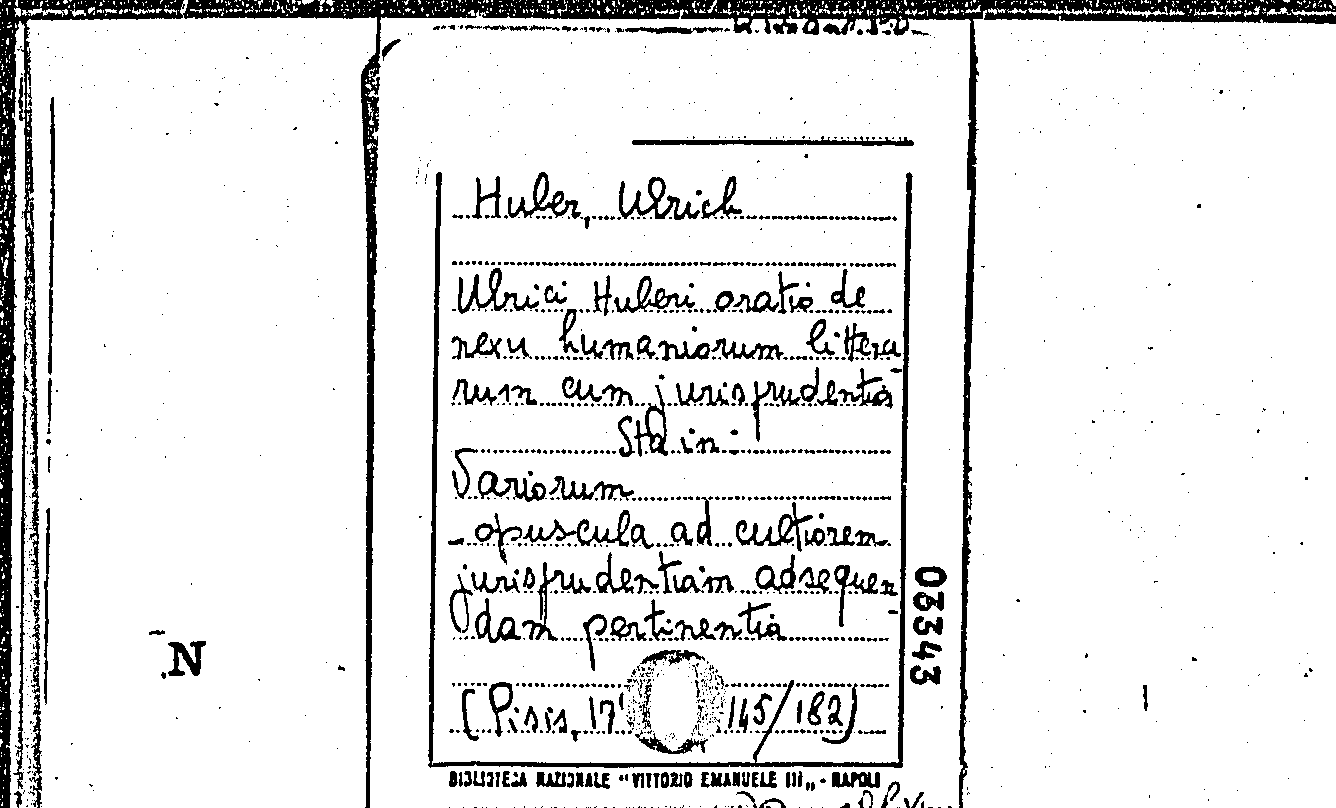 Huber, Ulrich
Ulrici Huberi oratio de
nexu humaniorum littera-
rum cum jurisprudentia
Sta in:
Variorum
opuscula ad cultiorem
jurisprudentiam adsequen-
dam pertinentia
(Pisis, 17 145/182)
BIBLIOTECA NAZIONALE "VITTORIO EMANUELE III" - NAPOLI
03343
N